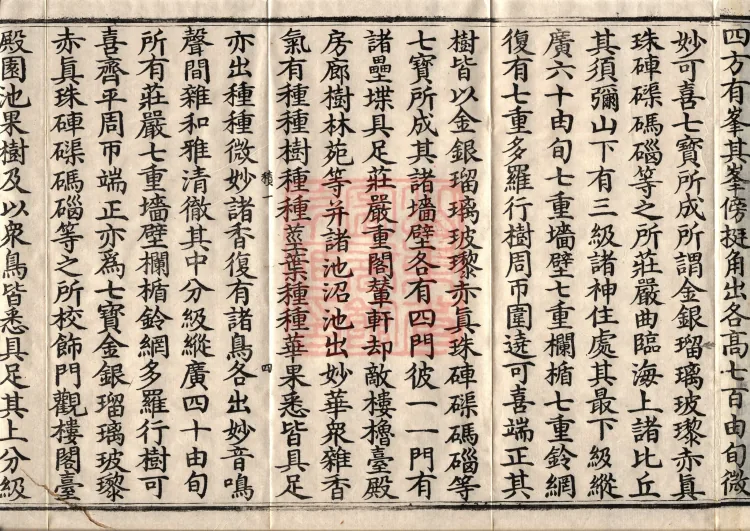 四方有峯其峯傍挺角出各高七百由旬微
妙可喜七寶所成所謂金銀瑠璃玻瓈赤眞
珠硨磲碼碯等之所莊嚴曲臨海上諸比丘
其須彌山下有三級諸神住處其最下級縱
廣六十由旬七重墻壁七重欄楯七重鈴網
復有七重多羅行樹周帀圍遶可喜端正其
樹皆以金銀瑠璃玻瓈赤眞珠硨磲碼碯等
七寶所成其諸墻壁各有四門彼一一門有
諸壘堞具足莊嚴重閣輦軒却敵樓櫓臺殿
房廊樹林苑等并諸池沼池出妙華衆雜香
氣有種種樹種種莖葉種種華果悉皆具足
積一 四
亦出種種微妙諸香復有諸鳥各出妙音鳴
聲間雜和雅清徹其中分級縱廣四十由旬
所有莊嚴七重墻壁欄楯鈴網多羅行樹可
喜齊平周帀端正亦爲七寶金銀瑠璃玻瓈
赤眞珠硨磲碼碯等之所校飾門觀樓閣臺
殿園池果樹及以衆鳥皆悉具足其上分級